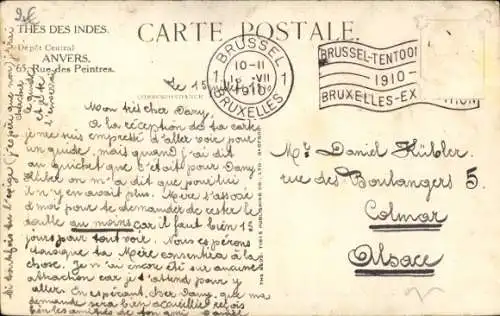 THÉS DES INDES.
Dépôt Central
ANVERS.
65, Rue des Peintres.
CARTE POSTALE.
BRUSSEL
1 10-11 VII 1
1910
BRUXELLES
BRUSSEL-TENTOO
1910
BRUXELLES-EX
CORRESPONDANCE
Le 15
Mon très cher Dany,
A la réception de ta carte
je me suis empressé d'aller voir pour
un guide, mais quand j'ai dit
au guichet que c'était pour Dany
on m'a dit que pour lui
il n'y en avait plus. Mère s'associe
à moi pour te demander de rester le
double au moins car il faut bien 15
jours pour tout voir. Nous espérons
que ta Mère consentira à la
chose. Je n'ai encore été sur aucune
attraction car je t'attend pour y
aller. En espérant, cher Dany, que ma
demande sera bien accueillie reçois
les amitiés de ton ami
Mr. Daniel Kübler.
rue des Boulangers 5.
Colmar
Alsace